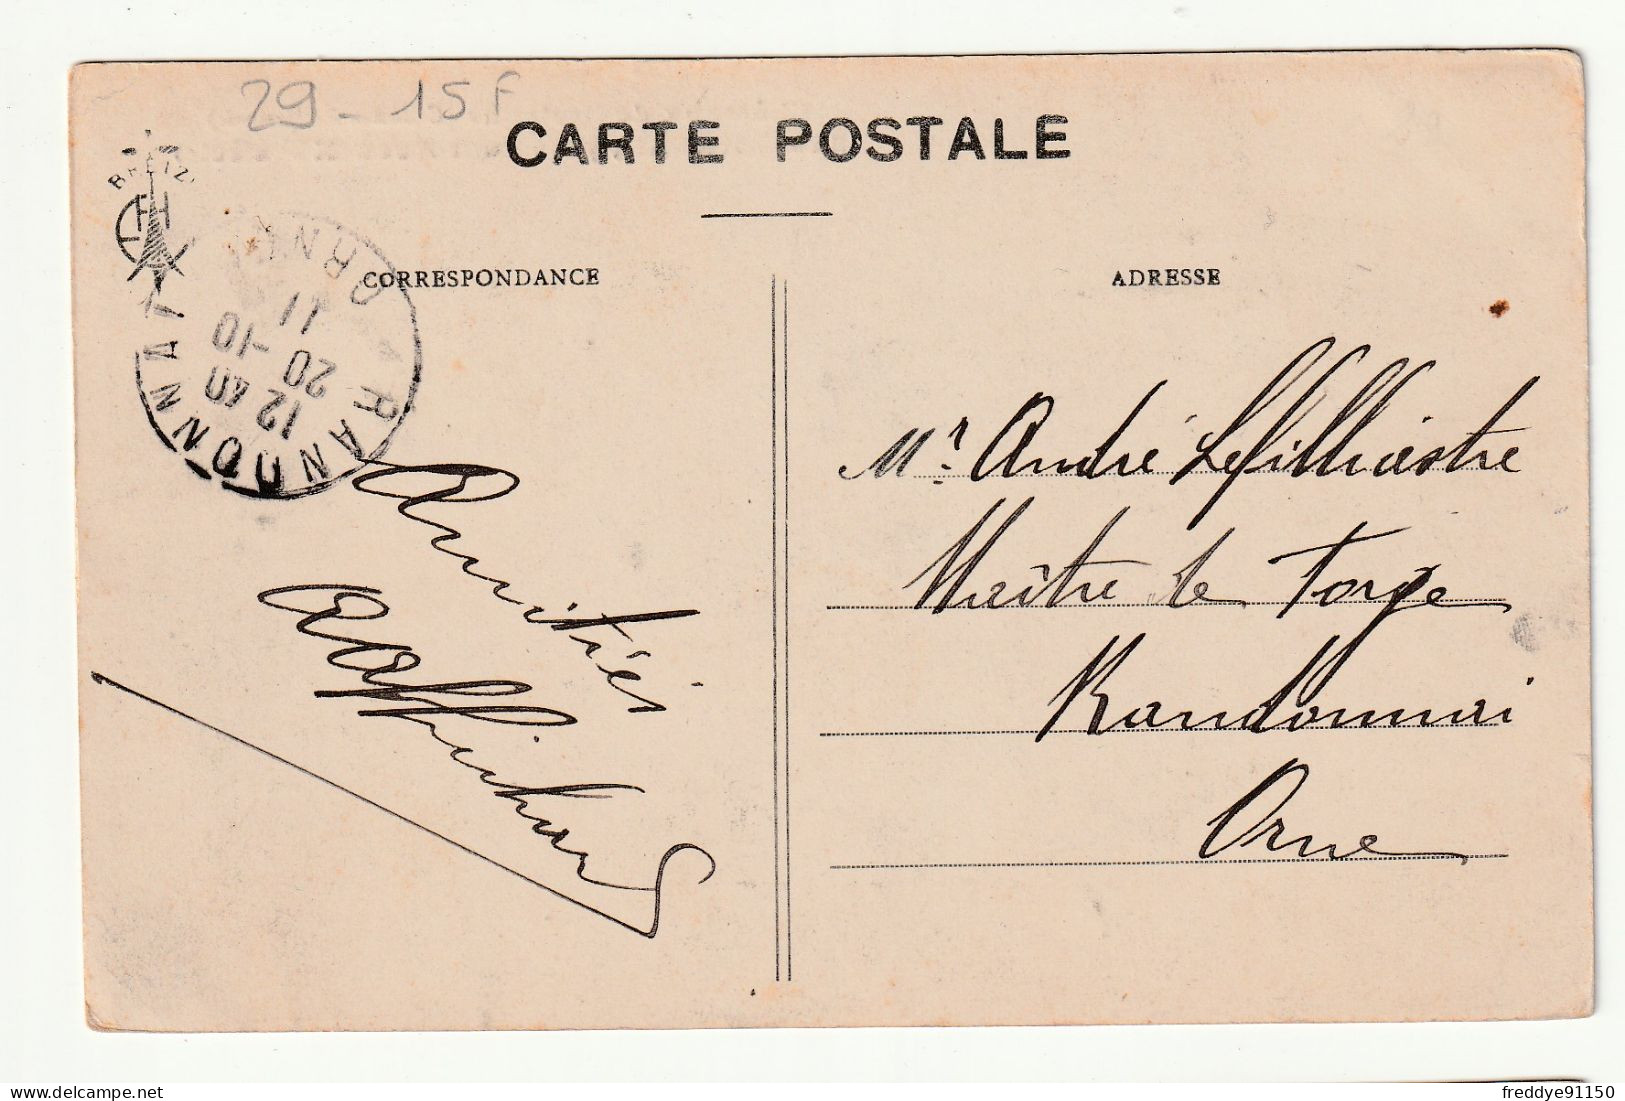 29 - 15 F
CARTE POSTALE
BREIZ
CORRESPONDANCE
ADRESSE
RANDONNAI ORNE
12 40
20 -10
11
Mr. André Lefilliastre
Maître de Forge
Randonnai
Orne
Amitiés
freddye91150